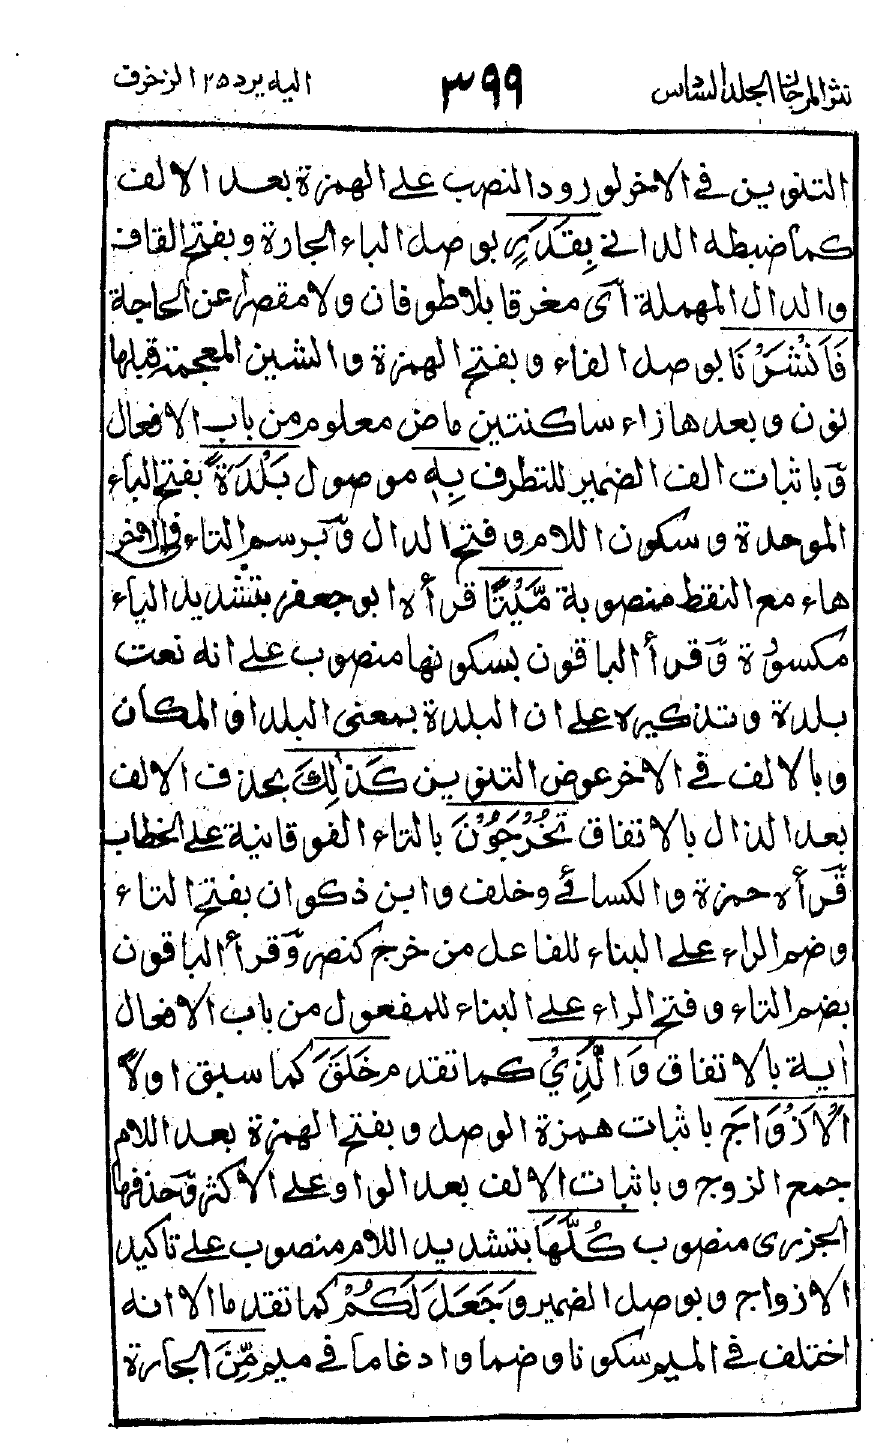 نثر المرجان الجلد السادس ٣٩٩ اليه يرد ٢٥ الزخرف
التنوين في الاخر لورود النصب على الهمزة بعد الالف
كما ضبطه الداني بِقَدَرٍ بوصل الباء الجارة و بفتح القاف
والدال المهملة آى مغرقا بلاطوفان ولا مقصرا عن الحاجة
فَاَنْشَرْنَا بوصل الفاء و بفتح الهمزة والشين المعجمة قبلها
نون و بعدها زاء ساكنتين ماض معلوم من باب الافعال
وٓباثبات الف الضمير للتطرف بِهٖ موصول بَلْدَةً بفتح الباء
الموحدة و سكون اللام و فتح الدال وٓبرسم التاء في الاخر
هاء مع النقط منصوبة مَّيْتًا قرأه ابو جعفر بتشديد الياء
مكسورة وٓقرأ الباقون بسكونها منصوب على انه نعت
بلدة و تذكيره على ان البلدة بمعنى البلد او المكان
وبالالف في الاخر عوض التنوين كَذٰلِكَ بحذف الالف
بعد الذال بالاتفاق تُخْرَجُوْنَ بالتاء الفوقانية على الخطاب
قٓرأه حمزة والكسائي وخلف وابن ذكوان بفتح التاء
وضم الراء على البناء للفاعل من خرج كنصر وٓقرأ الباقون
بضم التاء و فتح الراء على البناء للمفعول من باب الافعال
اٰية بالاتفاق وَالَّذِيْ كما تقدم خَلَقَ كما سبق اولًا
الْاَزْوَاجَ باثبات همزة الوصل و بفتح الهمزة بعد اللام
جمع الزوج و باثبات الالف بعد الواو على الاكثر وٓحذفها
الجزرى منصوب كُلَّهَا بتشديد اللام منصوب على تاكيد
الازواج و بوصل الضمير وَجَعَلَ لَكُمْ كما تقدما الا انه
اختلف في الميم سكونا و ضما و ادغاما في ميم مِّنَ الجارة